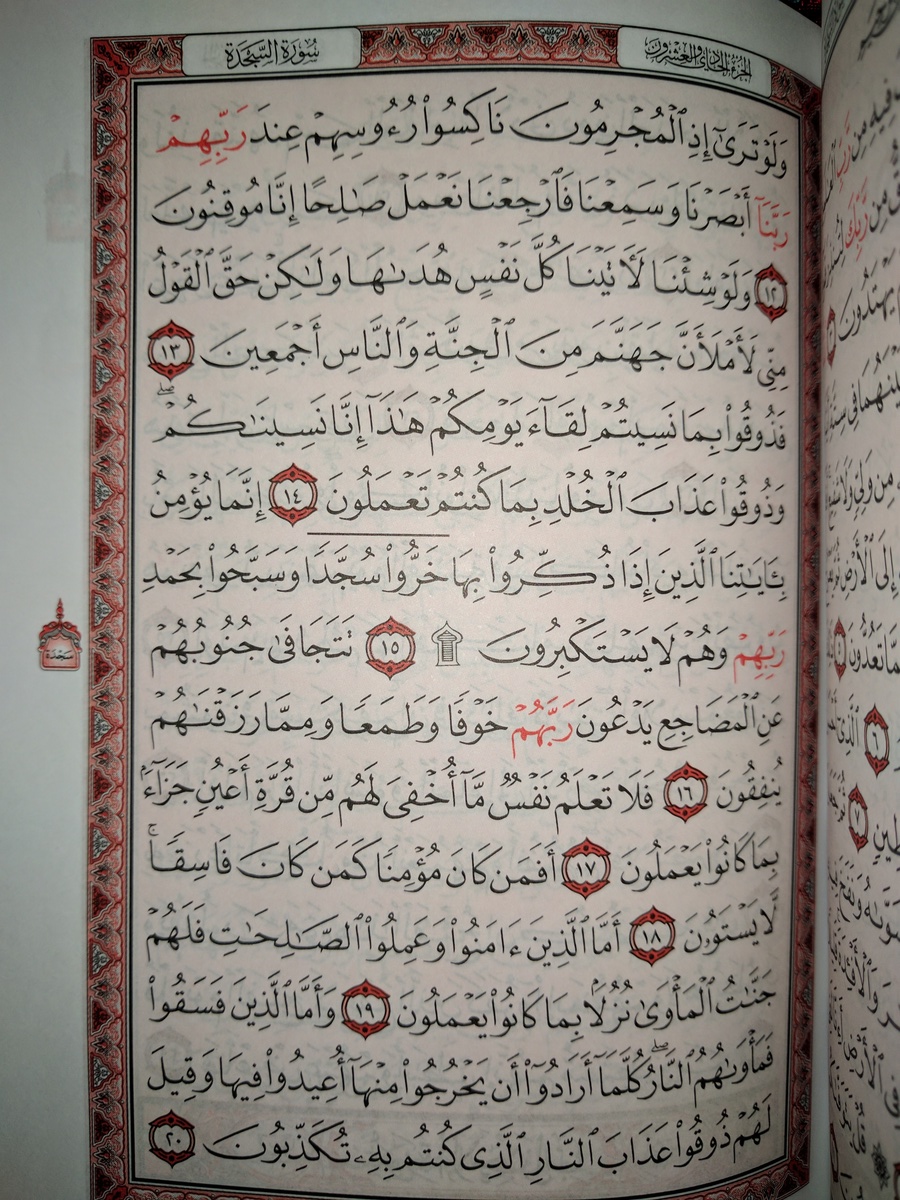 الجزء الحادي والعشرون
سُورَةُ السَّجْدَةِ
وَلَوْ تَرَىٰٓ إِذِ ٱلْمُجْرِمُونَ نَاكِسُوا۟ رُءُوسِهِمْ عِندَ رَبِّهِمْ
رَبَّنَآ أَبْصَرْنَا وَسَمِعْنَا فَٱرْجِعْنَا نَعْمَلْ صَـٰلِحًا إِنَّا مُوقِنُونَ
١٢ وَلَوْ شِئْنَا لَـَٔاتَيْنَا كُلَّ نَفْسٍ هُدَىٰهَا وَلَـٰكِنْ حَقَّ ٱلْقَوْلُ
مِنِّى لَأَمْلَأَنَّ جَهَنَّمَ مِنَ ٱلْجِنَّةِ وَٱلنَّاسِ أَجْمَعِينَ ١٣
فَذُوقُوا۟ بِمَا نَسِيتُمْ لِقَآءَ يَوْمِكُمْ هَـٰذَآ إِنَّا نَسِينَـٰكُمْ ۖ
وَذُوقُوا۟ عَذَابَ ٱلْخُلْدِ بِمَا كُنتُمْ تَعْمَلُونَ ١٤ إِنَّمَا يُؤْمِنُ
بِـَٔايَـٰتِنَا ٱلَّذِينَ إِذَا ذُكِّرُوا۟ بِهَا خَرُّوا۟ سُجَّدًا وَسَبَّحُوا۟ بِحَمْدِ
رَبِّهِمْ وَهُمْ لَا يَسْتَكْبِرُونَ ۩ ١٥ تَتَجَافَىٰ جُنُوبُهُمْ
سجدة
عَنِ ٱلْمَضَاجِعِ يَدْعُونَ رَبَّهُمْ خَوْفًا وَطَمَعًا وَمِمَّا رَزَقْنَـٰهُمْ
يُنفِقُونَ ١٦ فَلَا تَعْلَمُ نَفْسٌ مَّآ أُخْفِىَ لَهُم مِّن قُرَّةِ أَعْيُنٍ جَزَآءًۢ
بِمَا كَانُوا۟ يَعْمَلُونَ ١٧ أَفَمَن كَانَ مُؤْمِنًا كَمَن كَانَ فَاسِقًا ۚ
لَّا يَسْتَوُۥنَ ١٨ أَمَّا ٱلَّذِينَ ءَامَنُوا۟ وَعَمِلُوا۟ ٱلصَّـٰلِحَـٰتِ فَلَهُمْ
جَنَّـٰتُ ٱلْمَأْوَىٰ نُزُلًۢا بِمَا كَانُوا۟ يَعْمَلُونَ ١٩ وَأَمَّا ٱلَّذِينَ فَسَقُوا۟
فَمَأْوَىٰهُمُ ٱلنَّارُ ۖ كُلَّمَآ أَرَادُوٓا۟ أَن يَخْرُجُوا۟ مِنْهَآ أُعِيدُوا۟ فِيهَا وَقِيلَ
لَهُمْ ذُوقُوا۟ عَذَابَ ٱلنَّارِ ٱلَّذِى كُنتُم بِهِۦ تُكَذِّبُونَ ٢٠